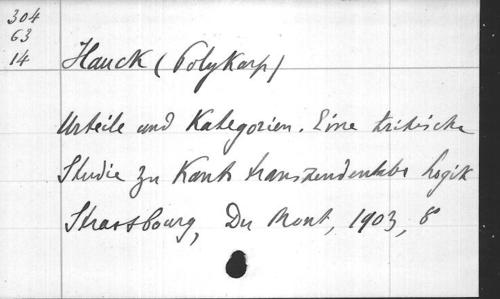 304
63
14
Hauck (Polykarp)
Urteile und Kategorien. Eine kritische
Studie zu Kants transzendentaler Logik
Strassbourg, Du Mont, 1903, 8°